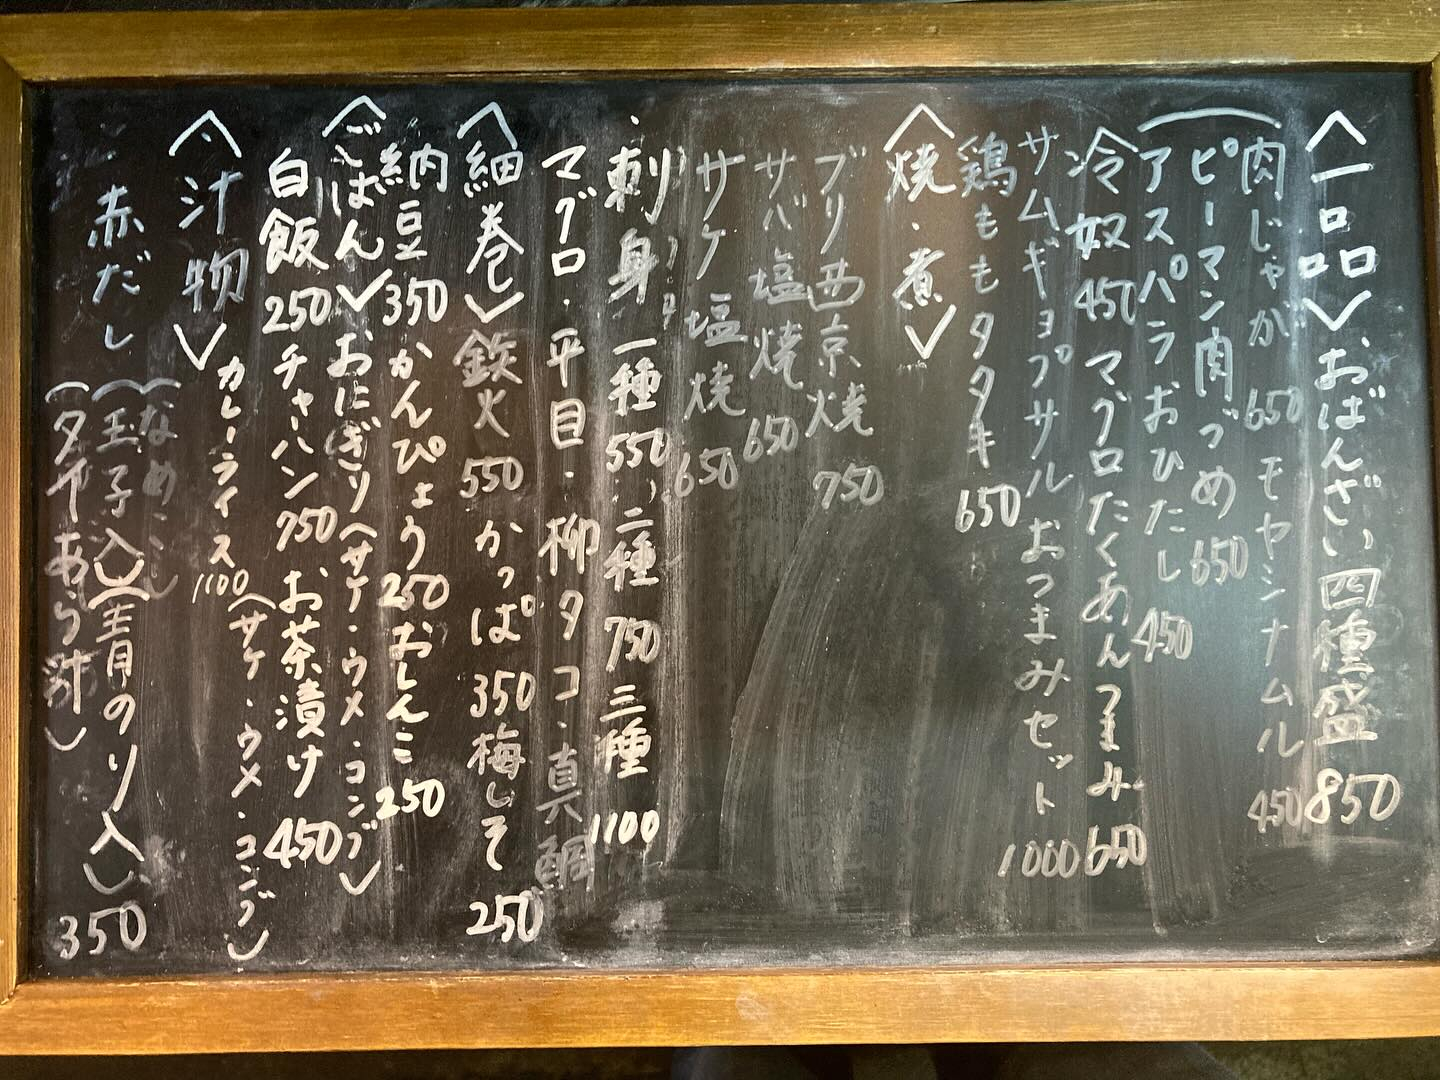 〈一品〉おばんざい四種盛 850
肉じゃが 650 モヤシナムル 450
ピーマン肉づめ 650
アスパラおひたし 450
冷奴 450 マグロたくあんつまみ 650
サムギョプサル おつまみセット 1000
鶏ももタタキ 650
〈焼・煮〉
ブリ西京焼 750
サバ塩焼 650
サケ塩焼 650
刺身 一種 550 二種 750 三種 1100
マグロ・平目・柳タコ・真鯛
〈細巻〉鉄火 550 かっぱ 350 梅しそ 250
納豆 350 かんぴょう 250 おしんこ 250
〈ごはん〉おにぎり(サケ・ウメ・コンブ)
白飯 250 チャーハン 750 お茶漬け 450
カレーライス 1100 (サケ・ウメ・コンブ)
〈汁物〉
赤だし (なめこ)
(玉子入)(青のり入) 350